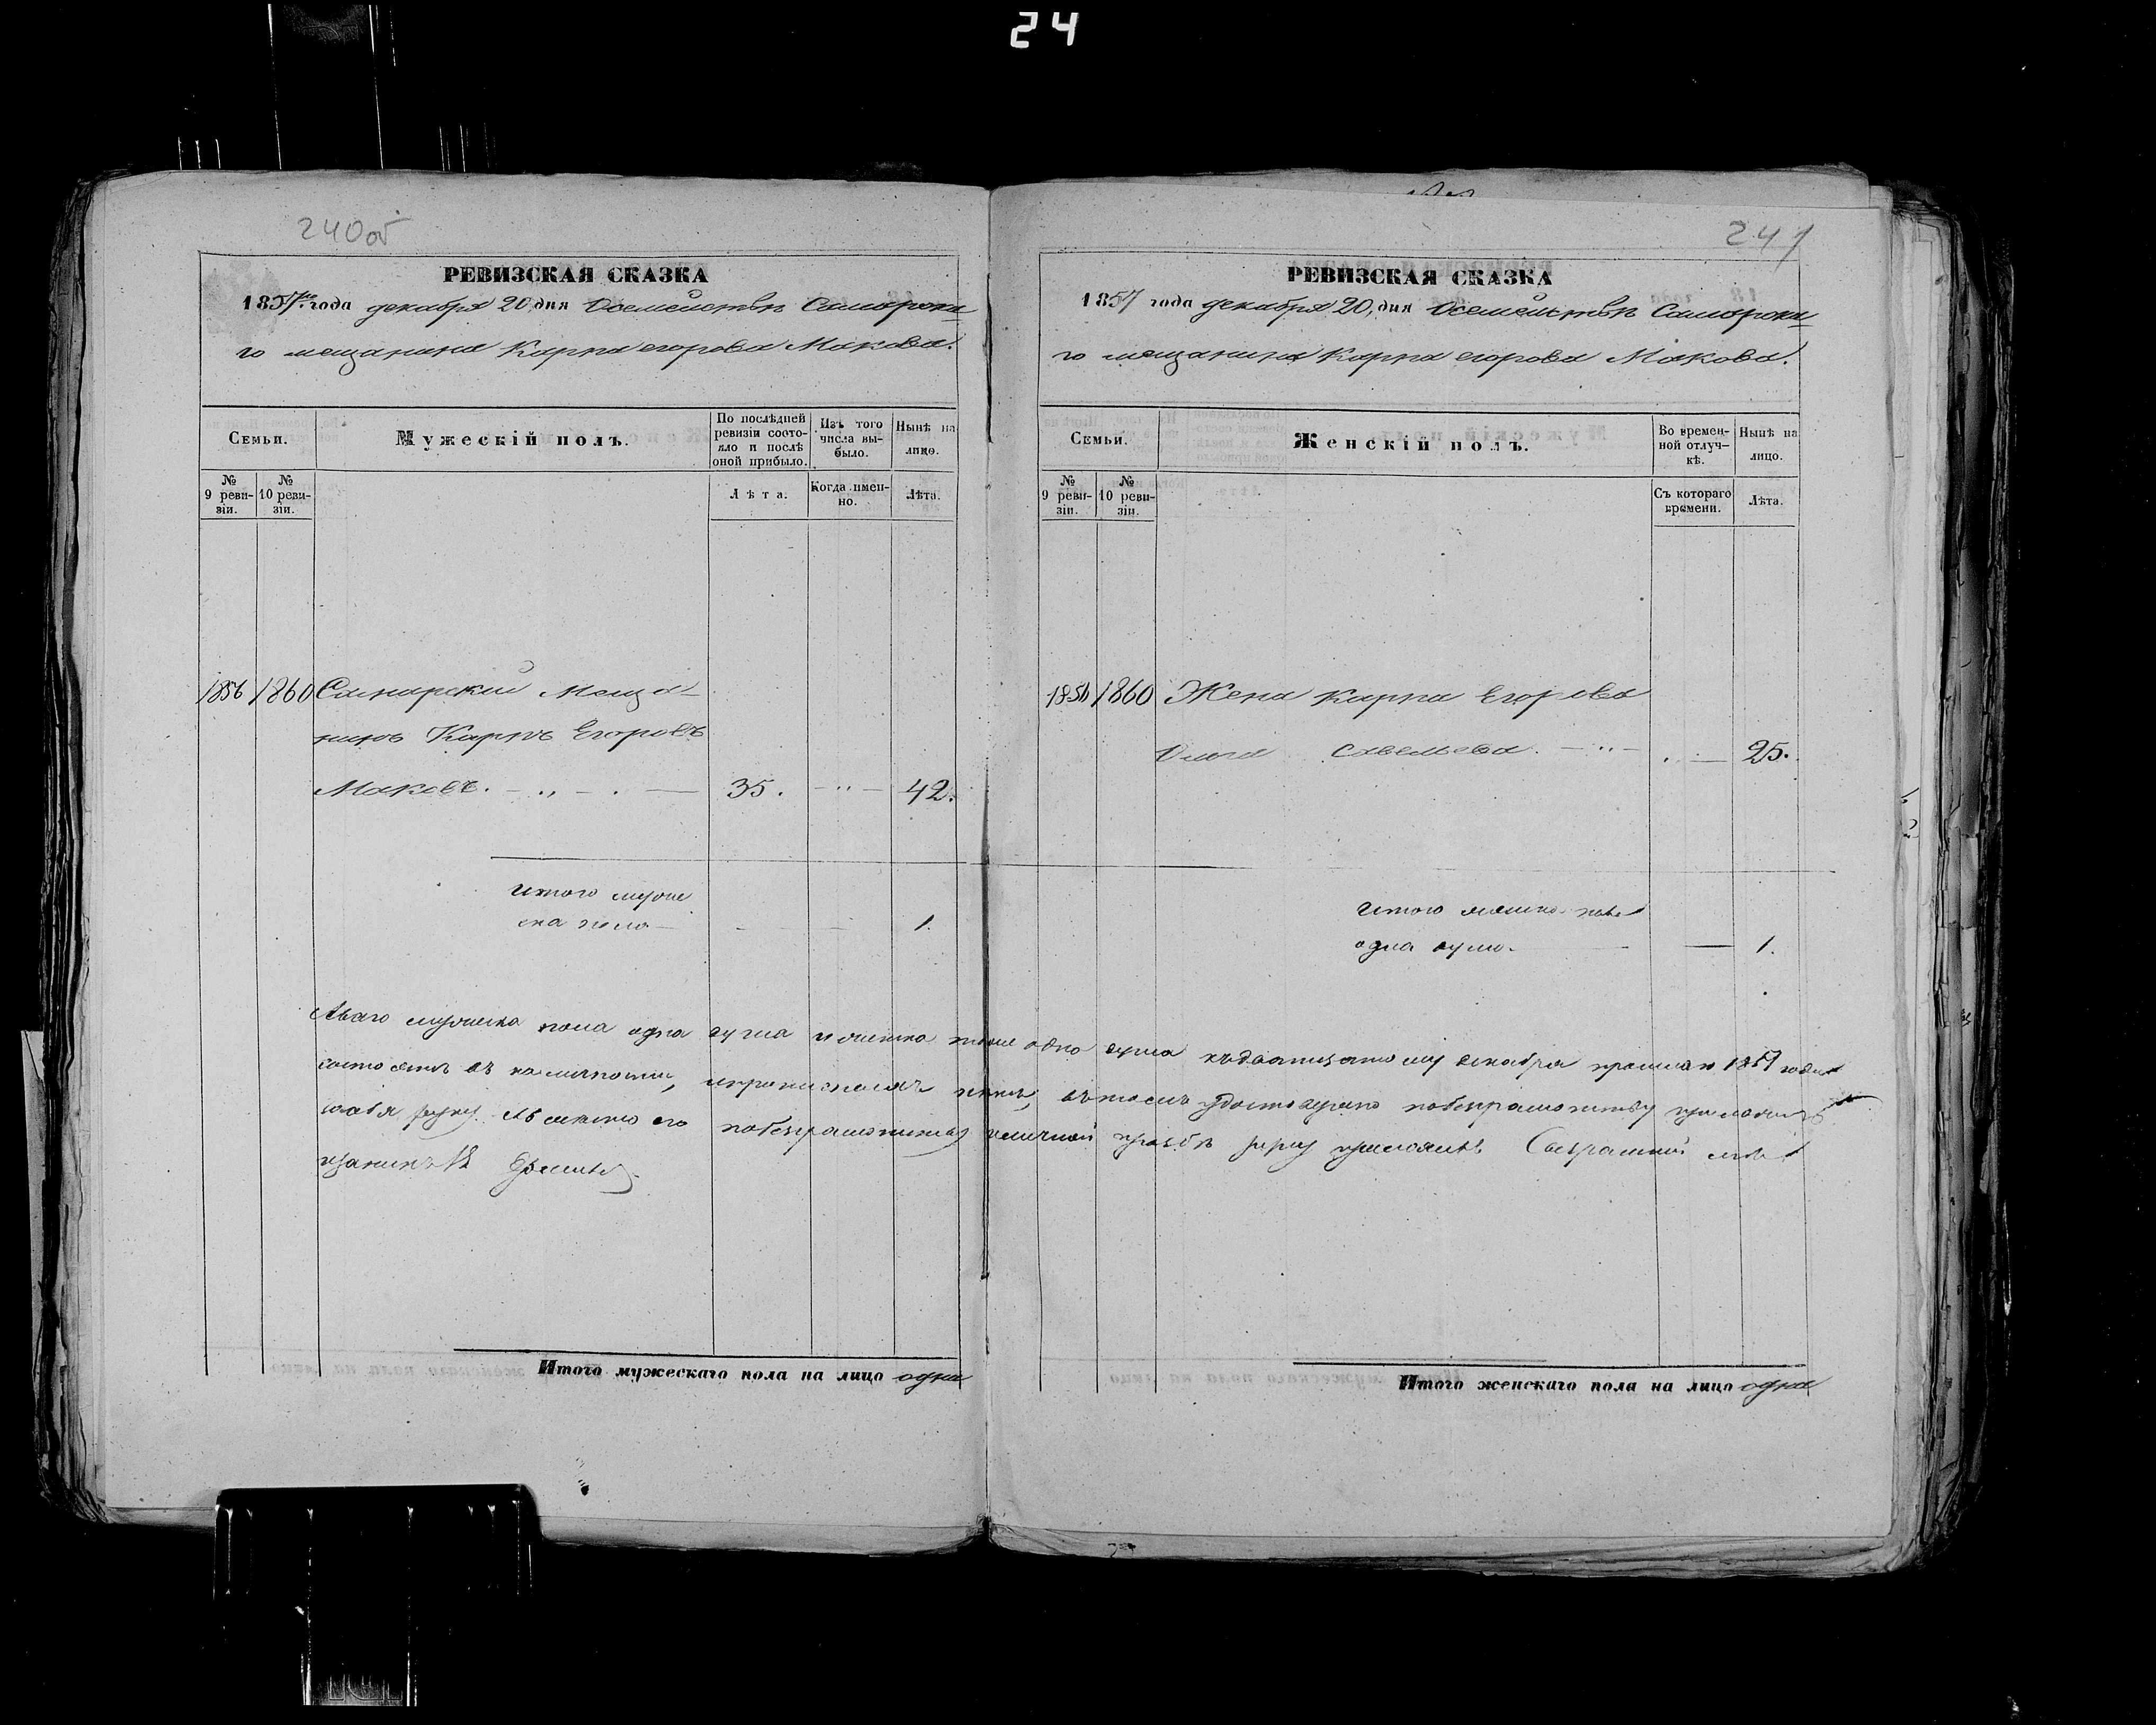 24
240об
РЕВИЗСКАЯ СКАЗКА
1857го года декабря 20 дня Осемействѣ Самарска
го мещанина Карпа егорова Макова.
Семьи.
Мужескій полъ.
По послѣдней ревизіи состояло и послѣ оной прибыло.
Изъ того числа выбыло.
Нынѣ на лицо.
№ 9 ревизіи.
№ 10 ревизіи.
Лѣта.
Когда именно.
Лѣта.
1856 1860 Самарский Меща-
нинъ Карпъ Егоровъ
Маковъ. 35. 42.
Итого муже
ска пола 1.
Итого мужескаго пола на лицо одна
241
РЕВИЗСКАЯ СКАЗКА
1857 года декабря 20, дня Осемействѣ Самарска
го мещанина Карпа егорова Макова.
Семьи.
Женскій полъ.
Во временной отлучкѣ.
Нынѣ на лицо.
№ 9 ревизіи.
№ 10 ревизіи.
Съ котораго времени.
Лѣта.
1856 1860 Жена Карпа Егорова
Ольга Савельева. 25.
Итого женска пола
одна душа. 1.
Авсего мужеска пола одна душа и женска тоже одна душа къдватцатому декабря 1857 года
состоятъ въ наличности,
руку. Авместо его побезграмотству иличной прозбѣ руку приложилъ Самарский ме
щанинъ
Итого женскаго пола на лицо одна